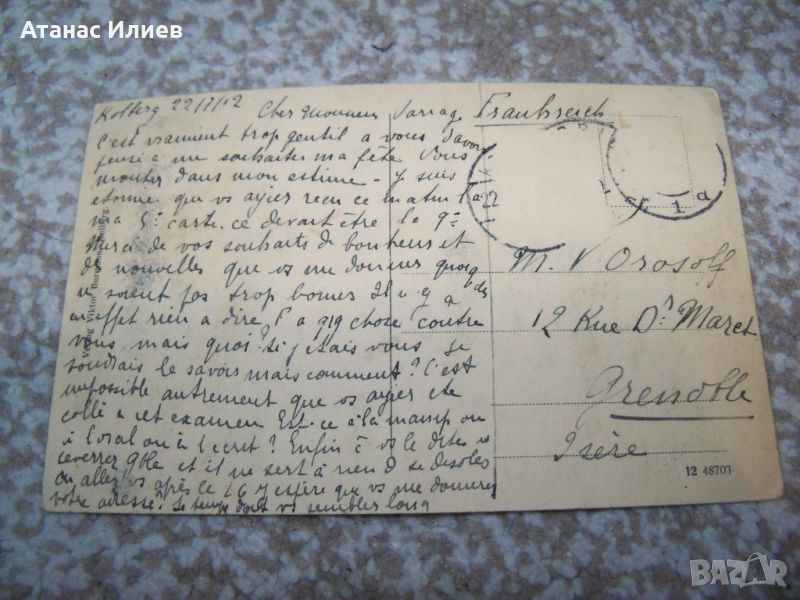 Атанас Илиев
Kolberg 22/7/12
Cher Monsieur
Frankreich
C'est vraiment trop gentil a vous d'avoir
pensé a me souhaiter ma fête Vous
monter dans mon estime - J suis
etonné que vs ayier recu ce matin
ma 5e carte. ce devait être le 9e
Merci de vos souhaits de bonheur et
de nouvelles que vs me donner quoiq
ne soient pas trop bonnes Il y a
en effet rien a dire, a qq chose contre
vous, mais quoi? Si j'etais vous je
voudrais le savoir mais comment? C'est
impossible autrement que vs ayier ete
collé a cet examen Est-ce à la
à l'oral ou à l'ecrit? Enfin vs le dites
et il ne sert à rien d se desoler
Ou aller vs après le 26 J'espère que vs me donnerez
votre adresse? Le temps doit vs sembler long
M. V Orosoff
12 Rue Drs Maret
Grenoble
Isère
1 a
Verlag Viktor
12 48703
BAZAR